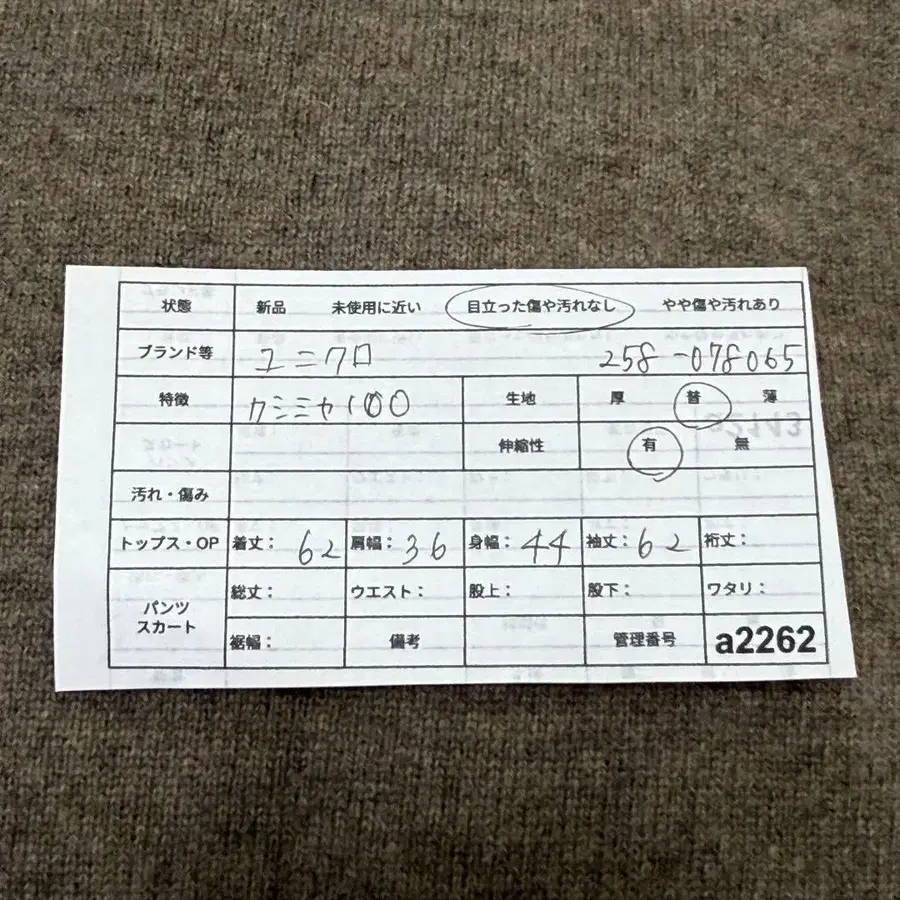 状態 新品 未使用に近い 目立った傷や汚れなし やや傷や汚れあり
ブランド等 ユニクロ 258-078065
特徴 カミミヤ100 生地 厚 普 薄
伸縮性 有 無
汚れ・傷み
トップス・OP 着丈: 62 肩幅: 36 身幅: 44 袖丈: 62 裄丈:
パンツ スカート 総丈: ウエスト: 股上: 股下: ワタリ:
裾幅: 備考 管理番号 a2262